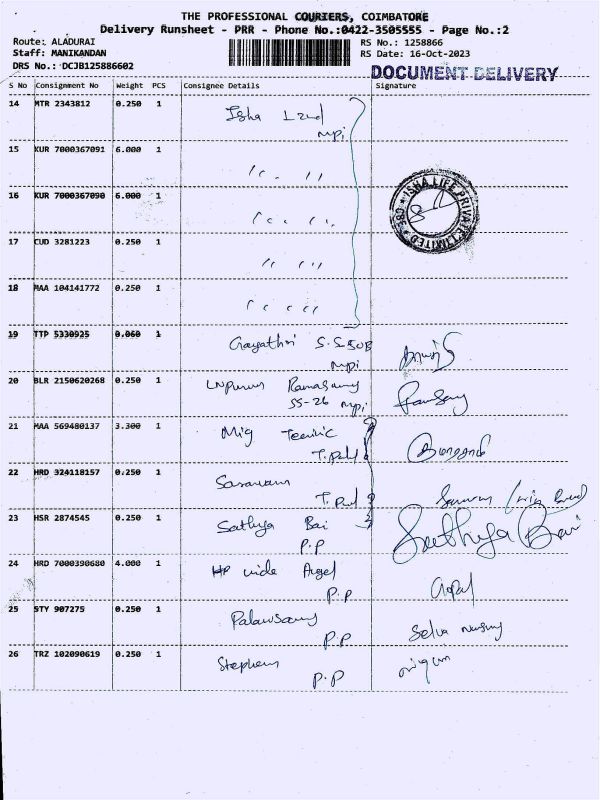 THE PROFESSIONAL COURIERS, COIMBATORE
Delivery Runsheet - PRR - Phone No.:0422-3505555 - Page No.:2
Route: ALADURAI
RS No.: 1258866
Staff: MANIKANDAN
RS Date: 16-Oct-2023
DRS No.: DCJB125886602
DOCUMENT DELIVERY
S No Consignment No Weight PCS Consignee Details Signature
14 MTR 2343812 0.250 1 Isha
mpi
15 KUR 7000367091 6.000 1 " "
16 KUR 7000367090 6.000 1 " "
ISHA LIFE PRIVATE LIMITED
17 CUD 3281223 0.250 1 " "
18 MAA 104141772 0.250 1 " "
19 TTP 5330925 0.060 1 Gayathri
mpi
20 BLR 2150620268 0.250 1 Ramasamy
SS-26 mpi
21 MAA 569480137 3.300 1 Mig
22 HRD 324118157 0.250 1 Saravanan
23 HSR 2874545 0.250 1 Sathya Bai Sathya Bai
P.P
24 HRD 7000390680 4.000 1 HP wide Angel Gopal
P.P
25 STY 907275 0.250 1 Palanisamy
P.P Selva
26 TRZ 102090619 0.250 1 Stephen
P.P